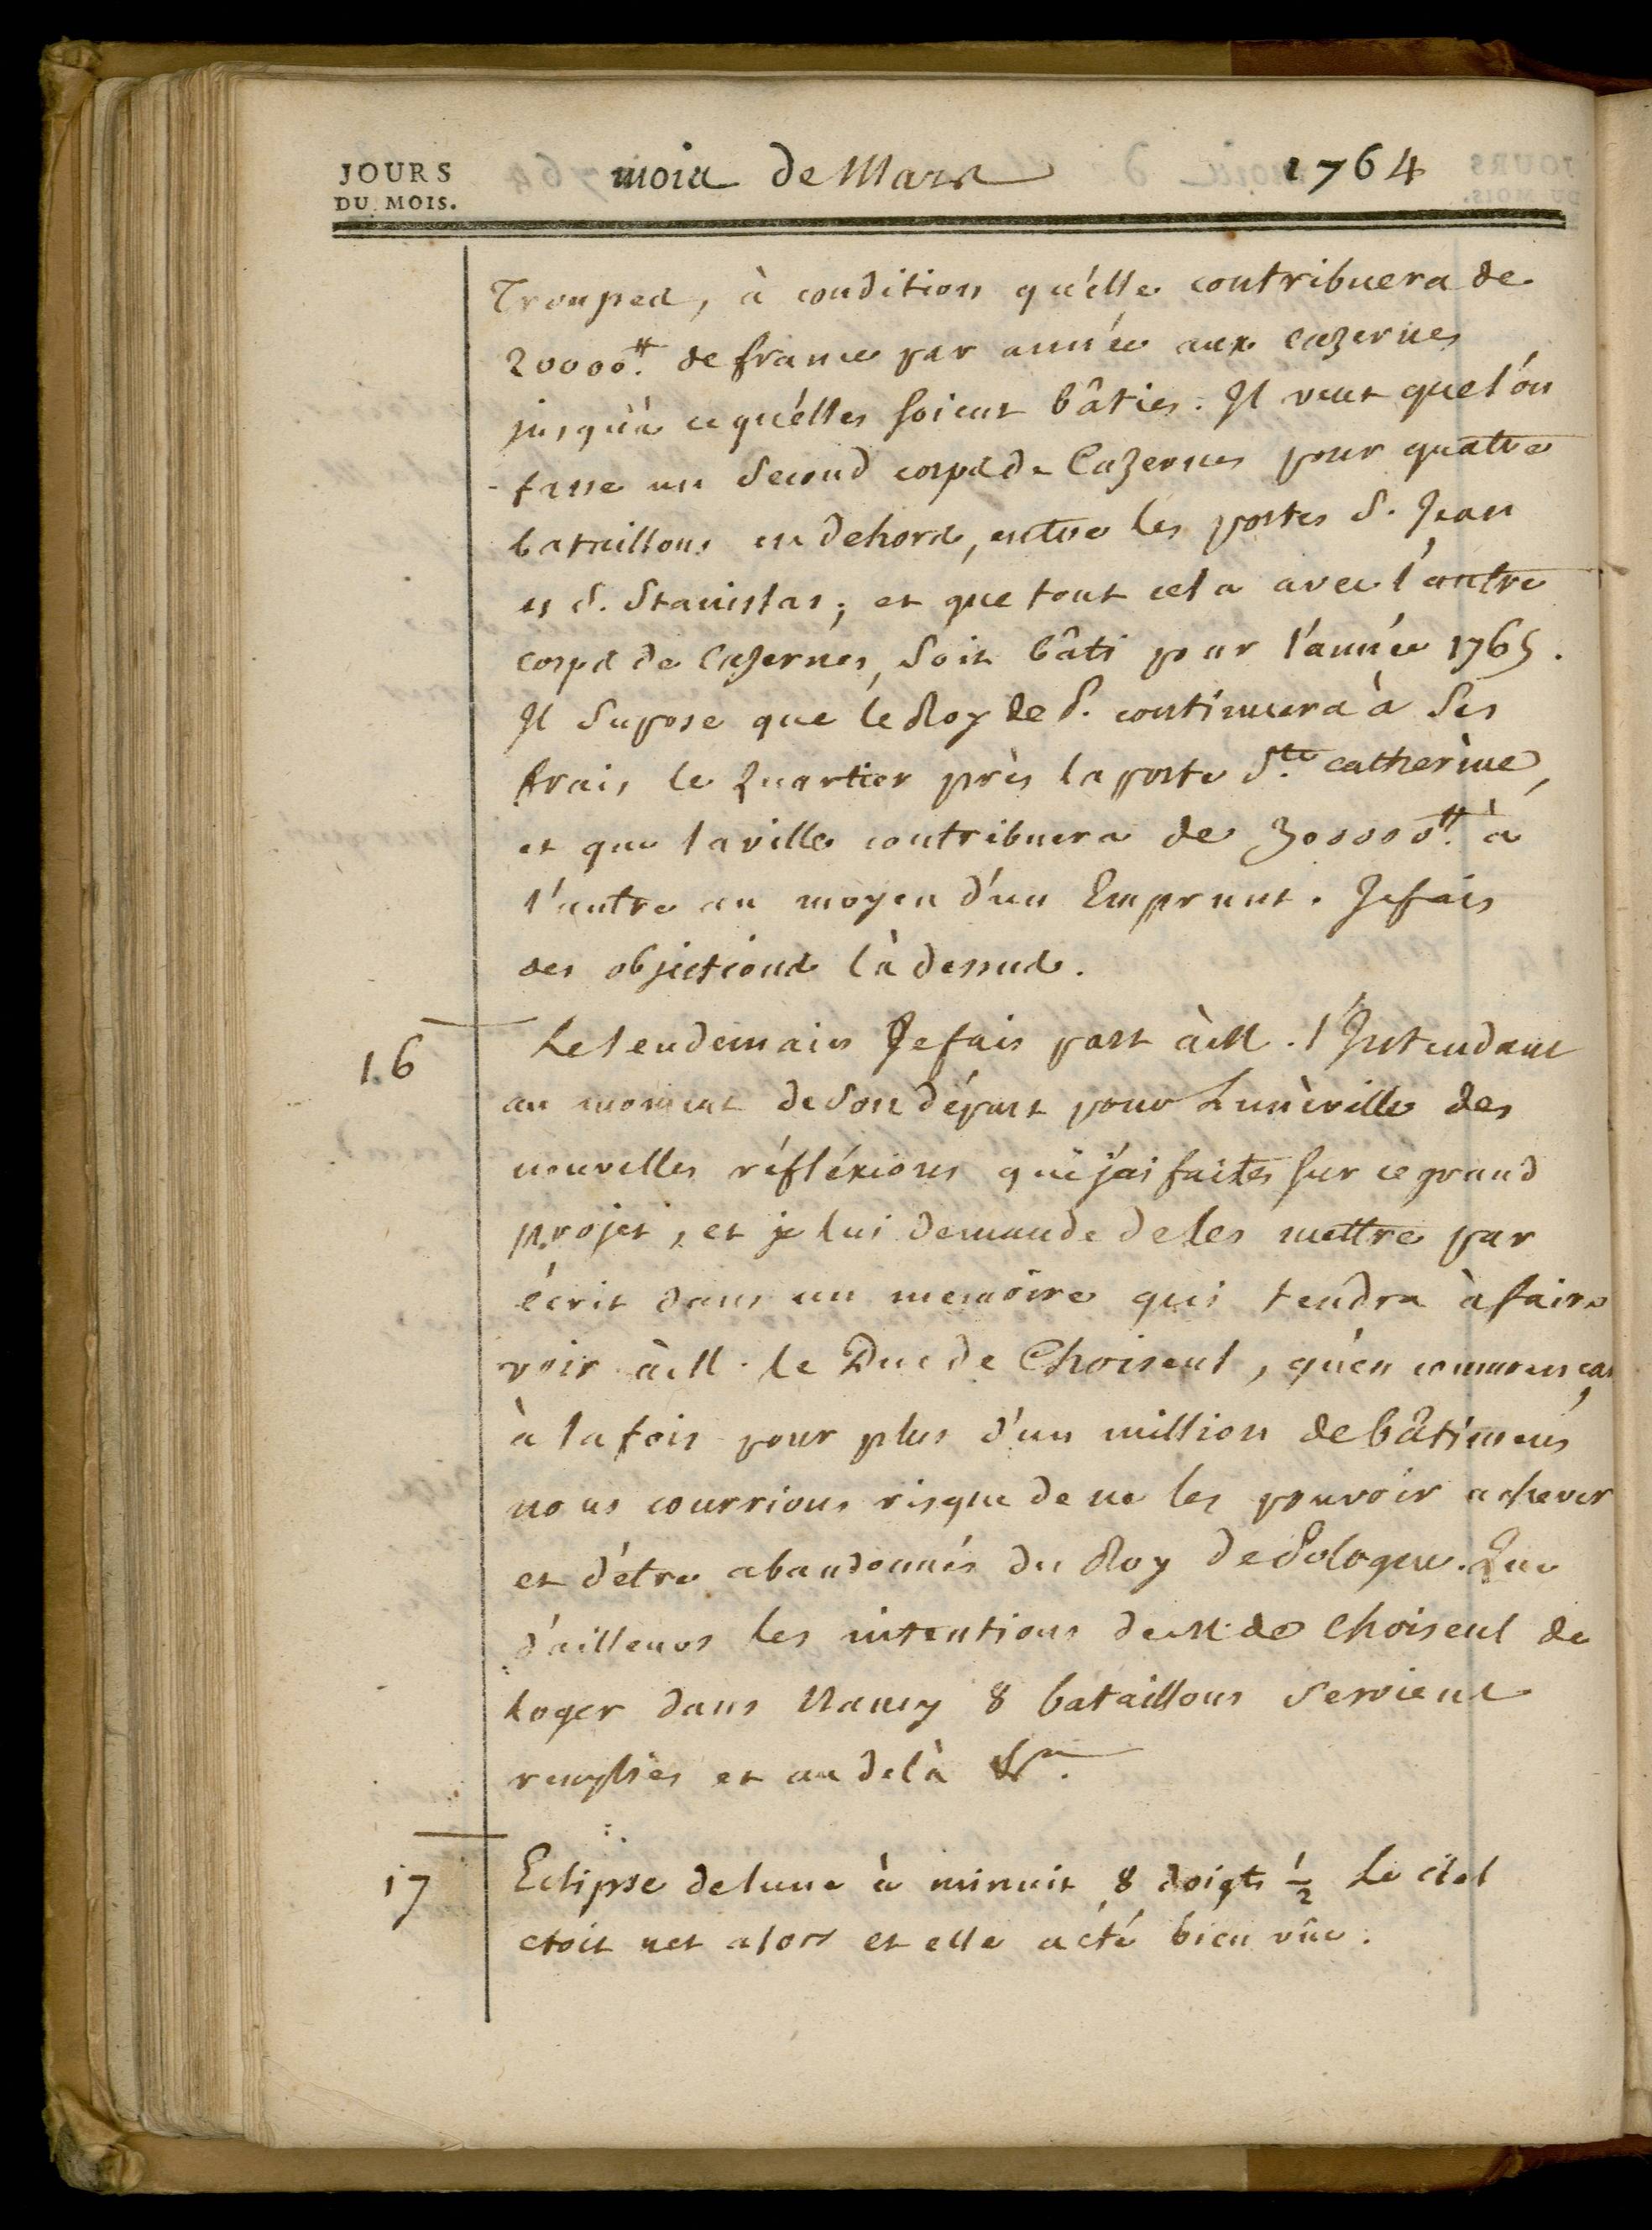 JOURS
DU MOIS.
mois de Mars 1764
Troupes, à condition qu'elle contribuera de
20000.ᵗᵗ de france par année aux cazernes
jusqu'à ce qu'elles soient bâties. Il veut que l'on
fasse un second corps de Cazernes pour quatre
bataillons en dehors, entre les portes S. Jean
et S. Stanislas; et que tout cela avec l'autre
corps de Cazernes, soit bâti pour l'année 1765.
Il supose que le Roy de P. continuera à ses
frais le Quartier près la porte S.te catherine,
et que la ville contribuera de 300000.ᵗᵗ à
l'autre au moyen d'un Emprunt. Je fais
des objections là dessus.
16
Le lendemain Je fais part à M. l'Intendant
au moment de son départ pour Lunèville des
nouvelles réfléxions que j'ai faites sur ce grand
projet, et je lui demande de les mettre par
écrit dans un memoire qui tendra à faire
voir à M. le Duc de Choiseul, qu'en commençan
à la fois pour plus d'un million de bâtimens
nous courrions risque de ne les pouvoir achever
et d'être abandonnés du Roy de Pologne. Que
d'ailleurs les intentions de M. de Choiseul de
loger dans Nancy 8 bataillons seroient
remplies et au delà &a.
17
Eclipse de lune à minuit 8 doigts ½ Le ciel
etoit net alors et elle a été bien vûe.